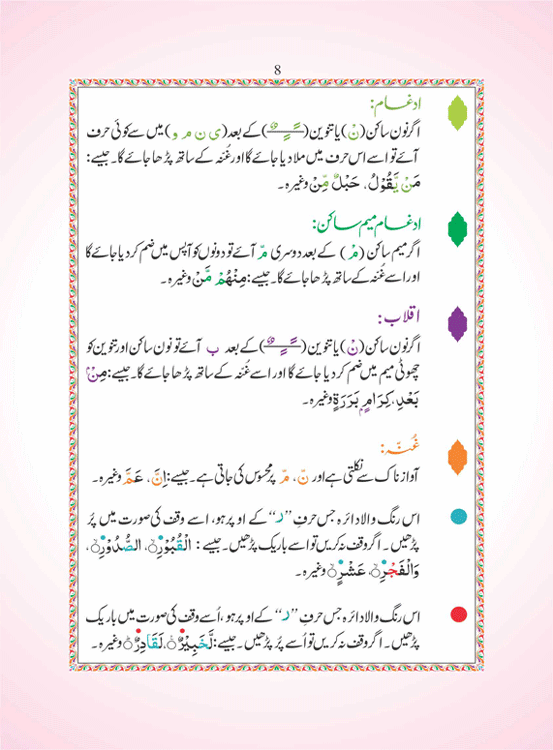 8
ادغام:
اگر نون ساکن (نْ) یا تنوین (ـًـٍـٌ) کے بعد (ی ن م و) میں سے کوئی حرف
آئے تو اسے اس حرف میں ملا دیا جائے گا اور غُنہ کے ساتھ پڑھا جائے گا۔ جیسے:
مَنْ يَّقُوْلُ، حَبْلٌ مِّنْ وغیرہ۔
ادغام میم ساکن:
اگر میم ساکن (مْ) کے بعد دوسری مّ آئے تو دونوں کو آپس میں ضم کر دیا جائے گا
اور اسے غُنہ کے ساتھ پڑھا جائے گا۔ جیسے: مِنْهُمْ مَّنْ وغیرہ۔
اقلاب:
اگر نون ساکن (نْ) یا تنوین (ـًـٍـٌ) کے بعد ب آئے تو نون ساکن اور تنوین کو
چھوٹی میم میں ضم کر دیا جائے گا اور اسے غُنہ کے ساتھ پڑھا جائے گا۔ جیسے: مِنْۢ
بَعْدِ، كِرَامٍۭ بَرَرَةٍ وغیرہ۔
غُنّہ:
آواز ناک سے نکلتی ہے اور نّ، مّ پر محسوس کی جاتی ہے۔ جیسے: اِنَّ، عَمَّ وغیرہ۔
اس رنگ والا دائرہ جس حرفِ ”ر“ کے اوپر ہو، اسے وقف کی صورت میں پُر
پڑھیں۔ اگر وقف نہ کریں تو اسے باریک پڑھیں۔ جیسے: الْقُبُوْرِ، الصُّدُوْرِ،
وَالْفَجْرِ، عَشْرٍ وغیرہ۔
اس رنگ والا دائرہ جس حرفِ ”ر“ کے اوپر ہو، اُسے وقف کی صورت میں باریک
پڑھیں۔ اگر وقف نہ کریں تو اُسے پُر پڑھیں۔ جیسے: لَّخَبِيْرٌ، لَقَادِرٌ وغیرہ۔